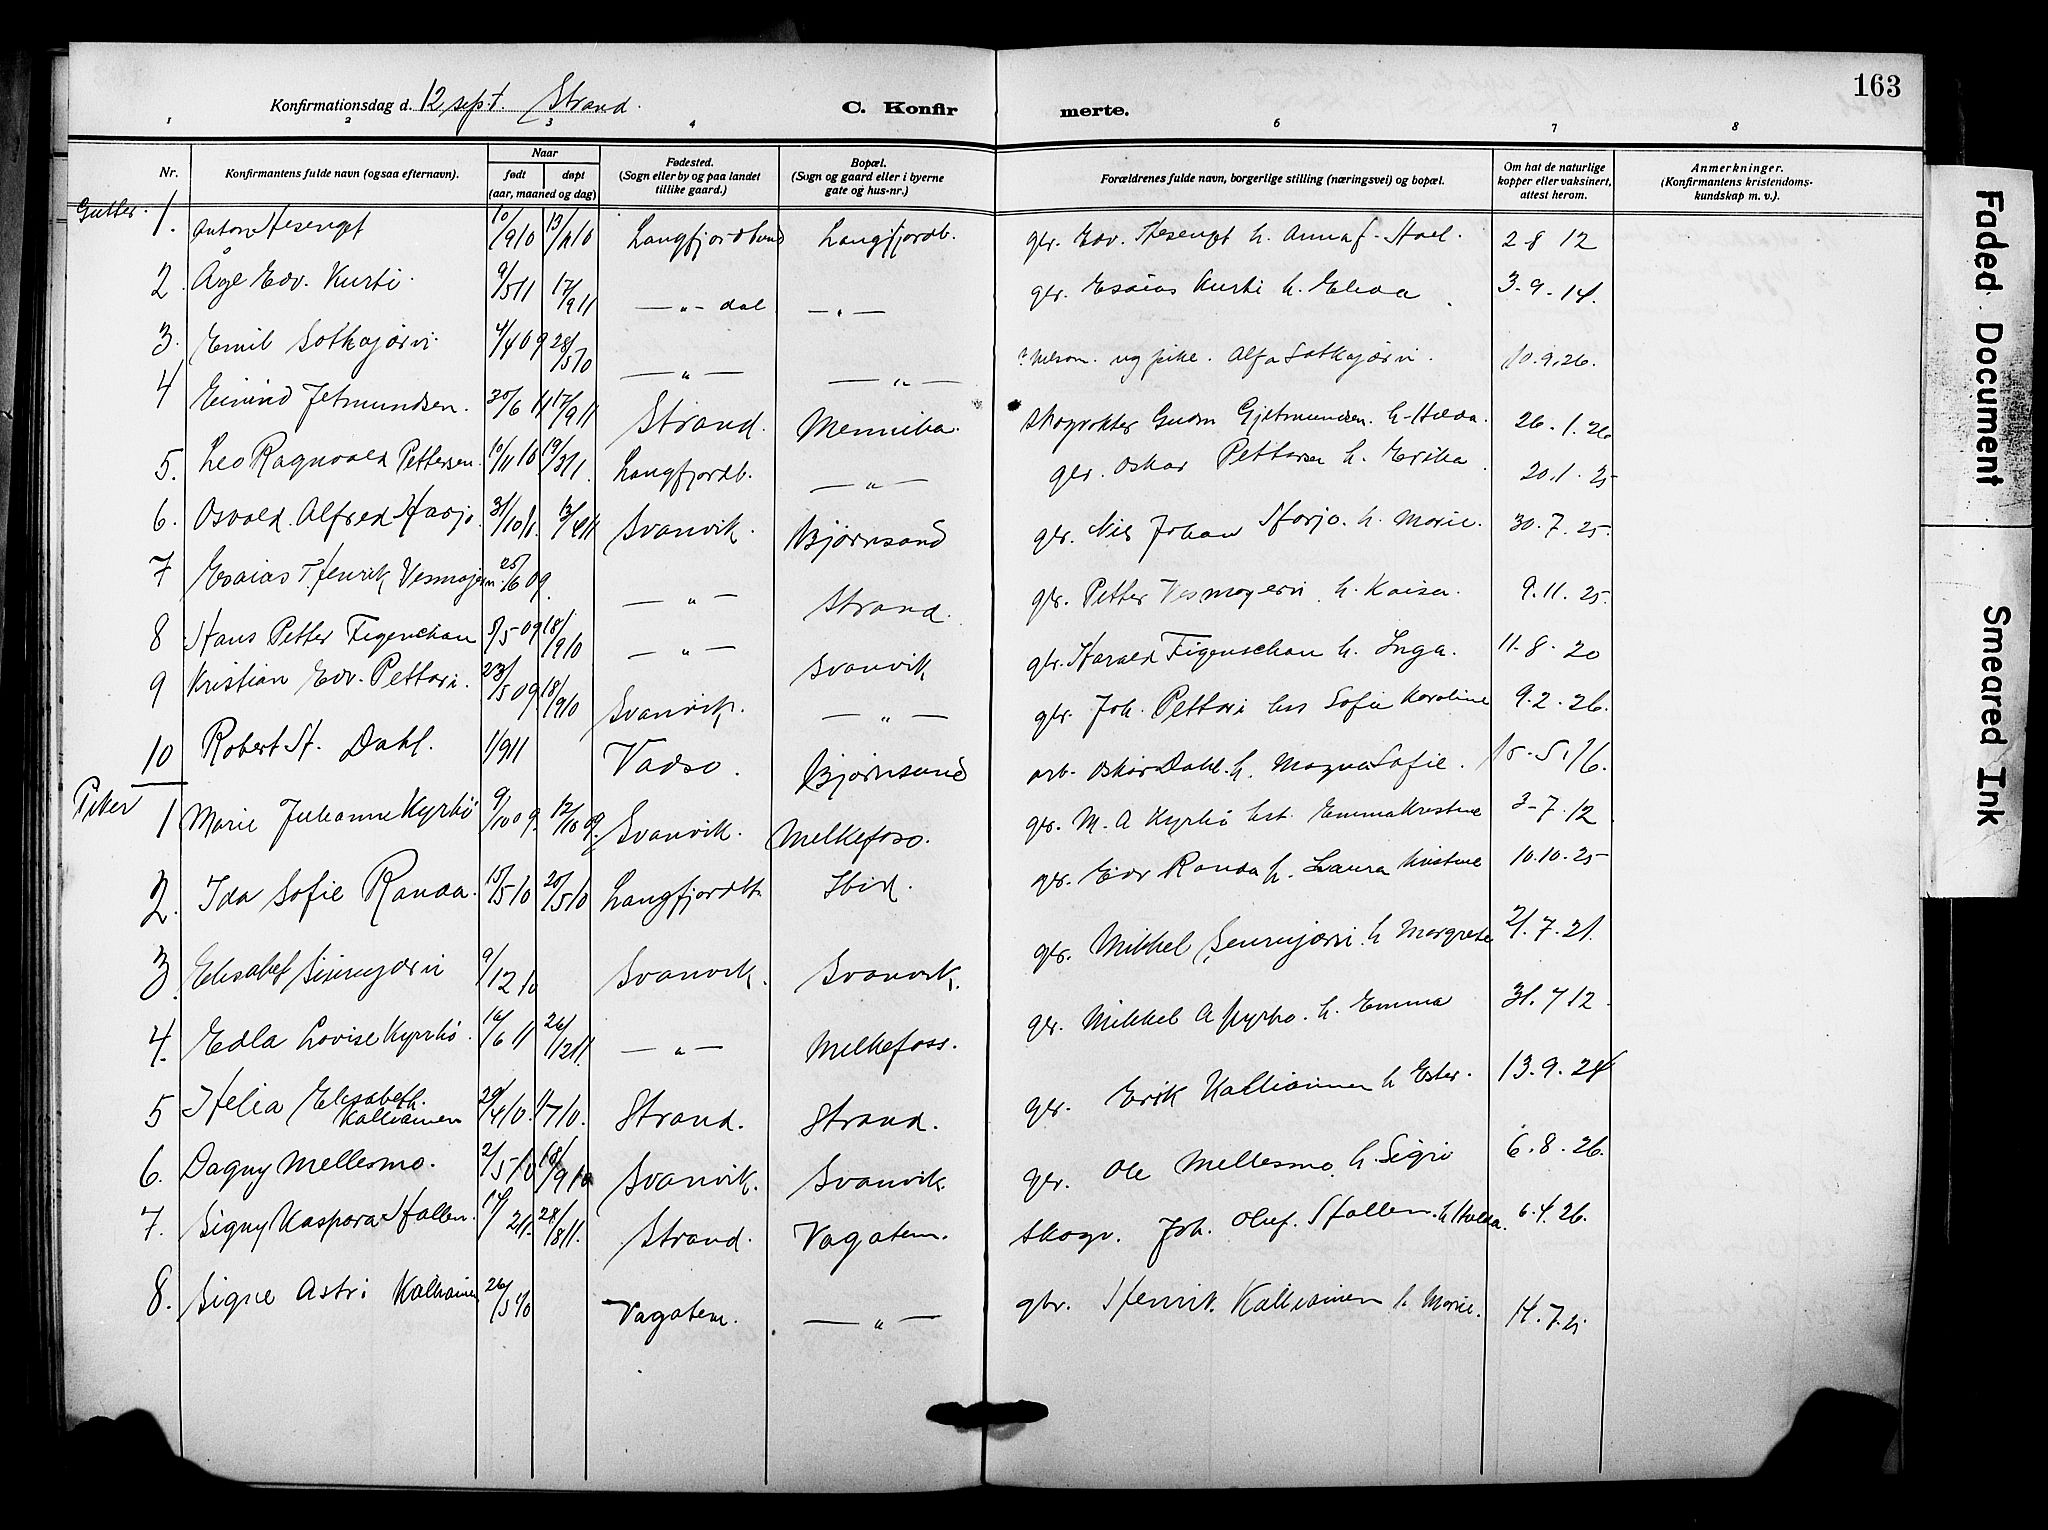 163
Konfirmationsdag d. 12 sept. Strand.
C. Konfirmerte.
1 2 3 4 6 7 8
Nr. Konfirmantens fulde navn (ogsaa efternavn). Naar født døpt (aar, maaned og dag) Fødested. (Sogn eller by og paa landet tillike gaard.) Bopæl. (Sogn og gaard eller i byerne gate og hus-nr.) Forældrenes fulde navn, borgerlige stilling (næringsvei) og bopæl. Om hat de naturlige kopper eller vaksinert, attest herom. Anmerkninger. (Konfirmantens kristendomskundskap m. v.).
Gutter.
1. Anton 10/9 10 Langfjordbund Langfjordb. gbr. Edv. h. Anna f. 2-8 12
2. Åge Edv. Kurti. 9/5 11 17/9 11 — " — dal — " — gbr. Esaias Kurti h. Elida 3-9-14.
3. Emil Sotkajærvi. 4/4 09 28/5 10 — " — — " — ug pike. Alfa Sotkajærvi. 10.9.26.
4 Eivind Jetmundsen. 30/6 11 17/9 11 Strand. Mennika. Skogvokter Gudm Gjetmundsen h. Hilda. 26.1.26
5. Leo Ragnvald Pettersen. 10/11 10 19/3 11. Langfjordb. — " — gbr. Oskar h. Erika 20.1.25
6. Osvald Alfred Harjo. 31/10 13/4 11 Svanvik. Bjørnsund gbr. Nils Johan Harjo. h. Marie. 30.7.25.
7 Esaias Henrik 25/6 09. — " — Strand. gbr. Petter h. Kaisa. 9.11.25.
8 Hans Petter Figenschau 8/5 09 18/9 10 — " — Svanvik gbr. Harald Figenschau h. Inga. 11.8.20
9 Kristian Edv. Pettari. 23/5 09. 18/9 10 Svanvik. — " — gbr. Joh. Pettari hus Sofie Karoline 9.2.26.
10 Robert H. Dahl. 1/9 11 Vadsø. Bjørnsund arb. Oskar Dahl. h. Magna Sofie. 15.5.16.
Piker
1 Marie Julianne Kyrhø 9/10 09. 12/10 09. Svanvik. Melkefoss. gbr. M. A Kyrhø hst. Emma Kristine 3-7.12
2. Ida Sofie Randa. 15/5 10 20/5 10 Langfjordb. Ibid. gbr. Edv Randa h. Laura Kristine 10.10.25
3. Elisabet 9/12 10 Svanvik. Svanvik. gbr. Mikkel h Margrete 21.7.21.
4. Edla Lovise Kyrhø. 16/6 11 26/12 11. — " — Melkefoss. gbr. Mikkel A Kyrhø. h. Emma 31.7 12.
5 Helia Elisabeth Kallianen 29/4 10. 17/ 10. Strand. Strand. gbr. Erik Kallianen h Ester. 13.9.24
6. Dagny Mellesmo. 2/5 10 18/9 10 Svanvik. Svanvik. gbr. Ole Mellesmo h. Sigri 6.8.26.
7. Signy Kaspara Hallen. 14/2 11. 28/8 11. Strand. Vagatem. Skogv. Joh. Oluf. Hallen. h Hulda. 6.4.26.
8. Signe Astri Kallianen 26/5 10 Vagatem. — " — gbr. Henrik Kallianen h. Marie. 14.7.21
Faded Document
Smeared Ink